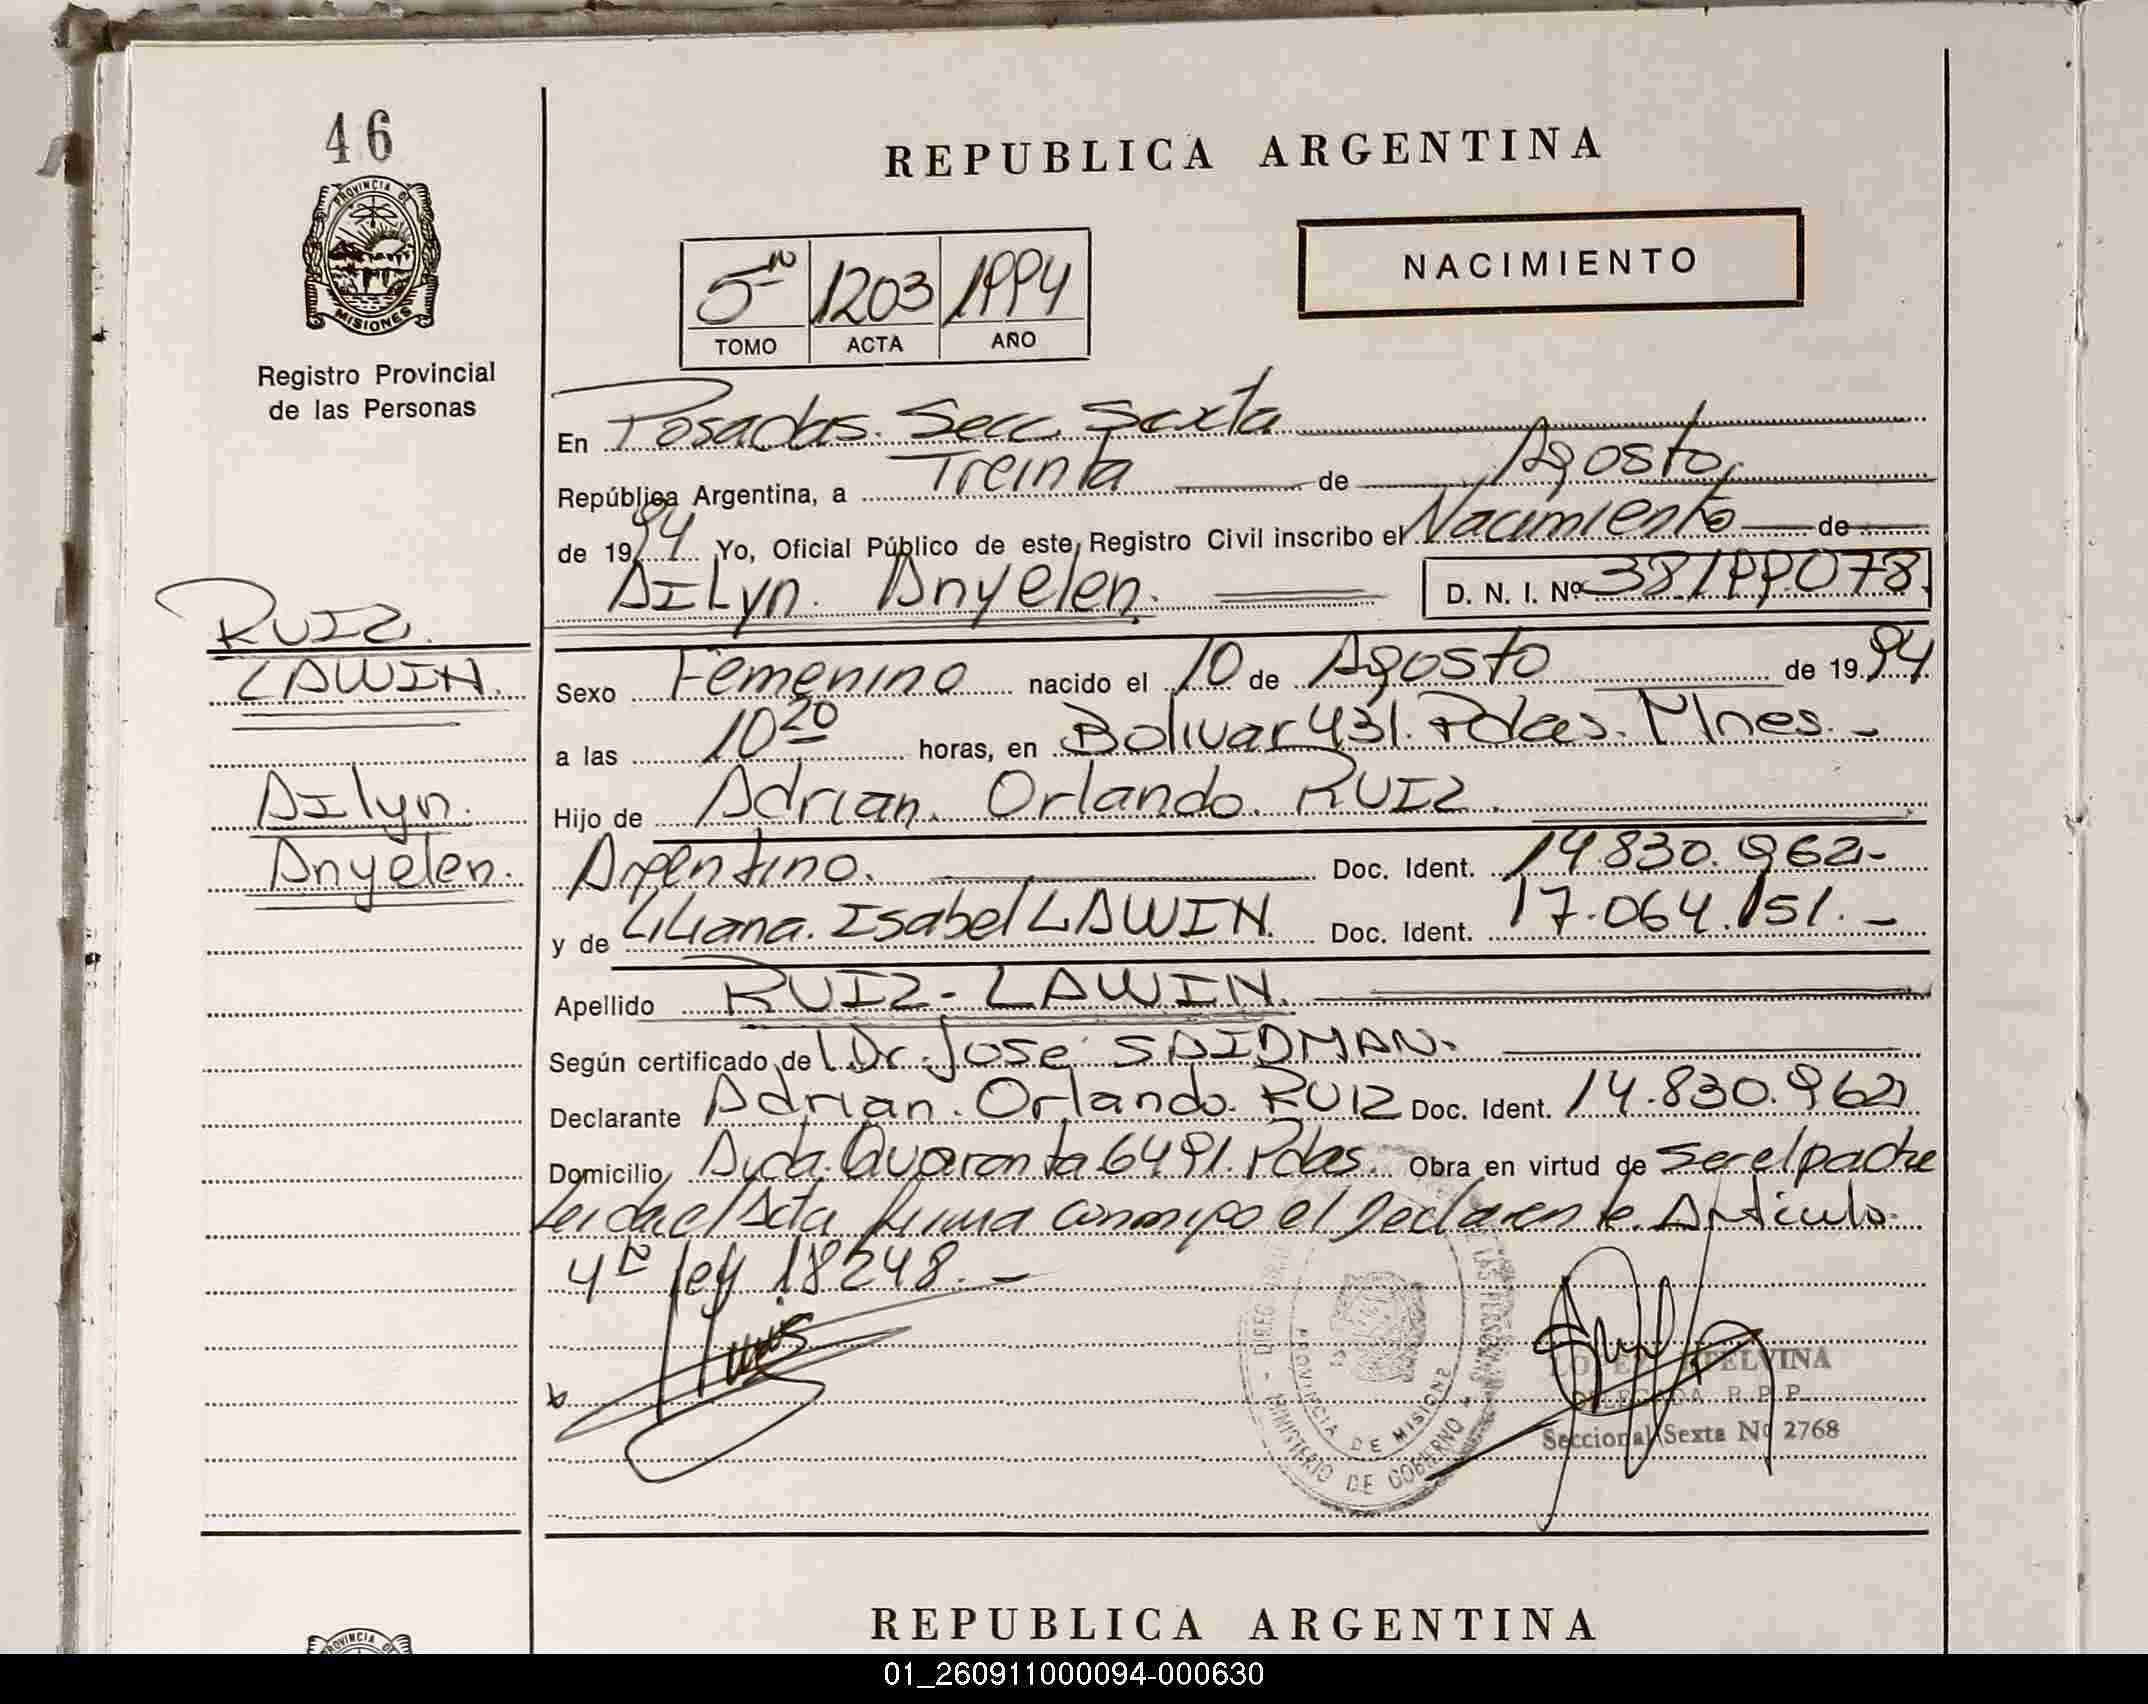 46
PROVINCIA DE
MISIONES
Registro Provincial
de las Personas
REPUBLICA ARGENTINA
NACIMIENTO
5º 1203 1994
TOMO ACTA AÑO
En Posadas. Secc. Sexta
República Argentina, a Treinta de Agosto
de 1994 Yo, Oficial Público de este Registro Civil inscribo el Nacimiento de
AILyn. Anyelen. D. N. I. Nº 38.199.078.
RUIZ.
LAWIN.
AIlyn.
Anyelen.
Sexo Femenino nacido el 10 de Agosto de 1994
a las 10 20 horas, en Bolivar 431. Pdas. Mnes. -
Hijo de Adrian. Orlando. RUIZ.
Argentino. Doc. Ident. 14.830.962-
y de Liliana. Isabel LAWIN. Doc. Ident. 17.064.151. -
Apellido RUIZ- LAWIN.
Según certificado de Dr. José SAIDMAN.
Declarante Adrian. Orlando. RUIZ Doc. Ident. 14.830.962
Domicilio Avda. Quaranta 6491. Pdas. Obra en virtud de ser el padre
Leida el Acta firma conmigo el declarante. Articulo.
4º ley 18248. -
PROVINCIA DE MISIONES
MINISTERIO DE GOBIERNO
LAS PERSONAS
ELVINA
DELEGADA R.P.P.
Seccional Sexta Nº 2768
REPUBLICA ARGENTINA
PROVINCIA
01_260911000094-000630